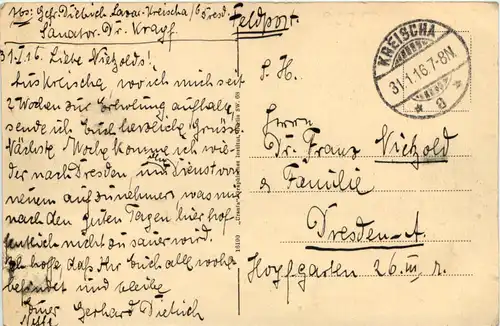 Abs: Gefr. Dietrich Lazar. Kreischa/b Dresd.
Sanator. Dr. Krapf.
31.I.16. Liebe Nietzolds!
Aus Kreischa, wo ich mich seit
2 Wochen zur Erholung aufhalte,
sende ich Euch herzliche Grüsse.
Nächste Woche komme ich wie-
der nach Dresden, um den Dienst von
neuem aufzunehmen, was mir
nach den guten Tagen hier hof-
fentlich nicht zu sauer wird.
Ich hoffe, dass Ihr Euch alle wohl
befindet und bleibe
Euer Gerhard Dietrich
Feldpost.
KREISCHA
31.1.16.7-8N
* a *
S. H.
Herrn
Dr. Franz Nietzold
& Familie
Dresden-A.
Hopfgarten 26 III, r.